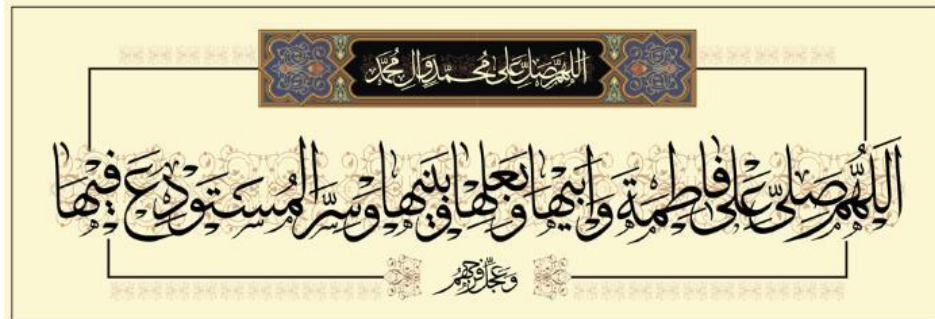 اللهم صل علی محمد وال محمد
اللهم صلی علی فاطمة و ابیها و بعلها و بنیها و سر المستودع فیها
و عجل فرجهم